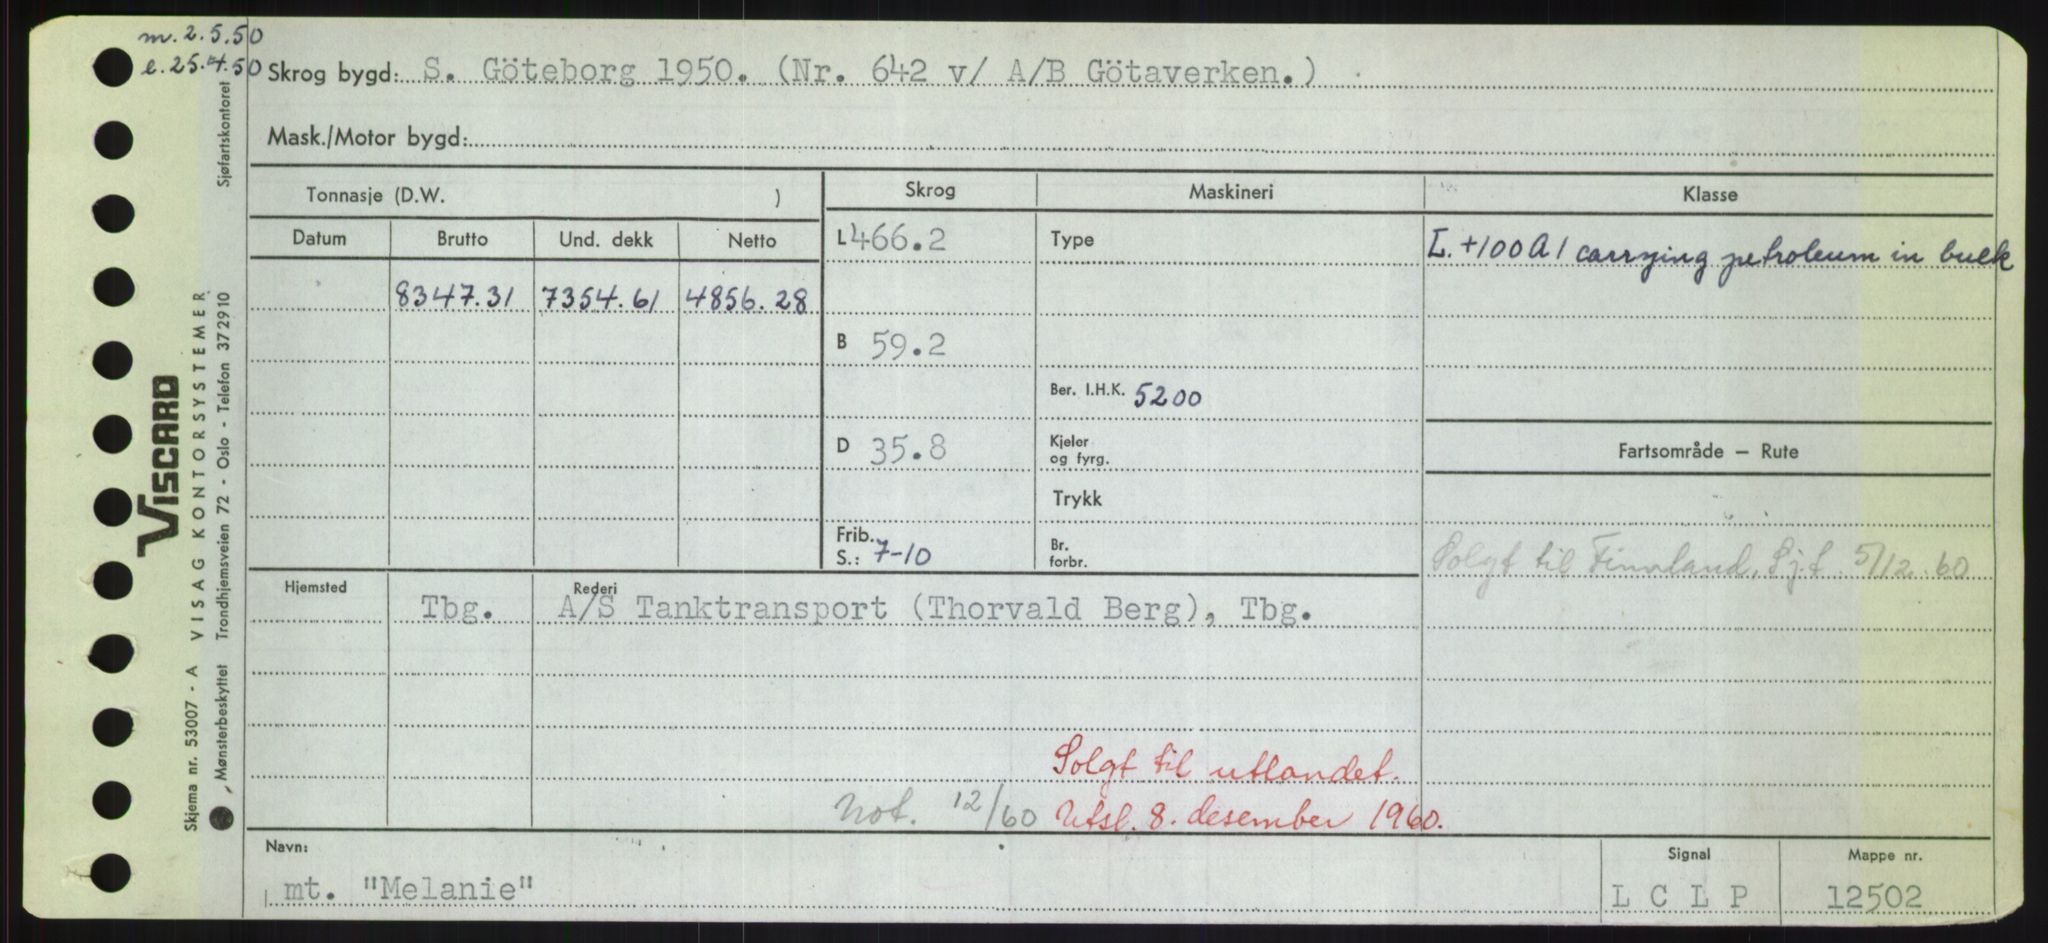 m. 2.5.50
e. 25.4.50
Skrog bygd: S. Göteborg 1950. (Nr. 642 v/ A/B Götaverken.)
Mask./Motor bygd:
Tonnasje (D.W. )
Skrog
Maskineri
Klasse
Datum
Brutto
Und. dekk
Netto
L 466.2
Type
L. +100A1 carrying petroleum in bulk
8347.31
7354.61
4856.28
B 59.2
Ber. I.H.K. 5200
D 35.8
Kjeler
og fyrg.
Fartsområde — Rute
Trykk
Frib.
S.: 7-10
Br.
forbr.
Solgt til Finnland, Sj.f. 5/12.60
Hjemsted
Tbg.
Rederi
A/S Tanktransport (Thorvald Berg), Tbg.
Solgt til utlandet.
Not. 12/60
Utsl. 8. desember 1960.
Navn:
mt. "Melanie"
Signal
L C L P
Mappe nr.
12502
VISCARD
Skjema nr. 53007 - A VISAG KONTORSYSTEMER
Mønsterbeskyttet Trondhjemsveien 72 - Oslo - Telefon 372910
Sjøfartskontoret